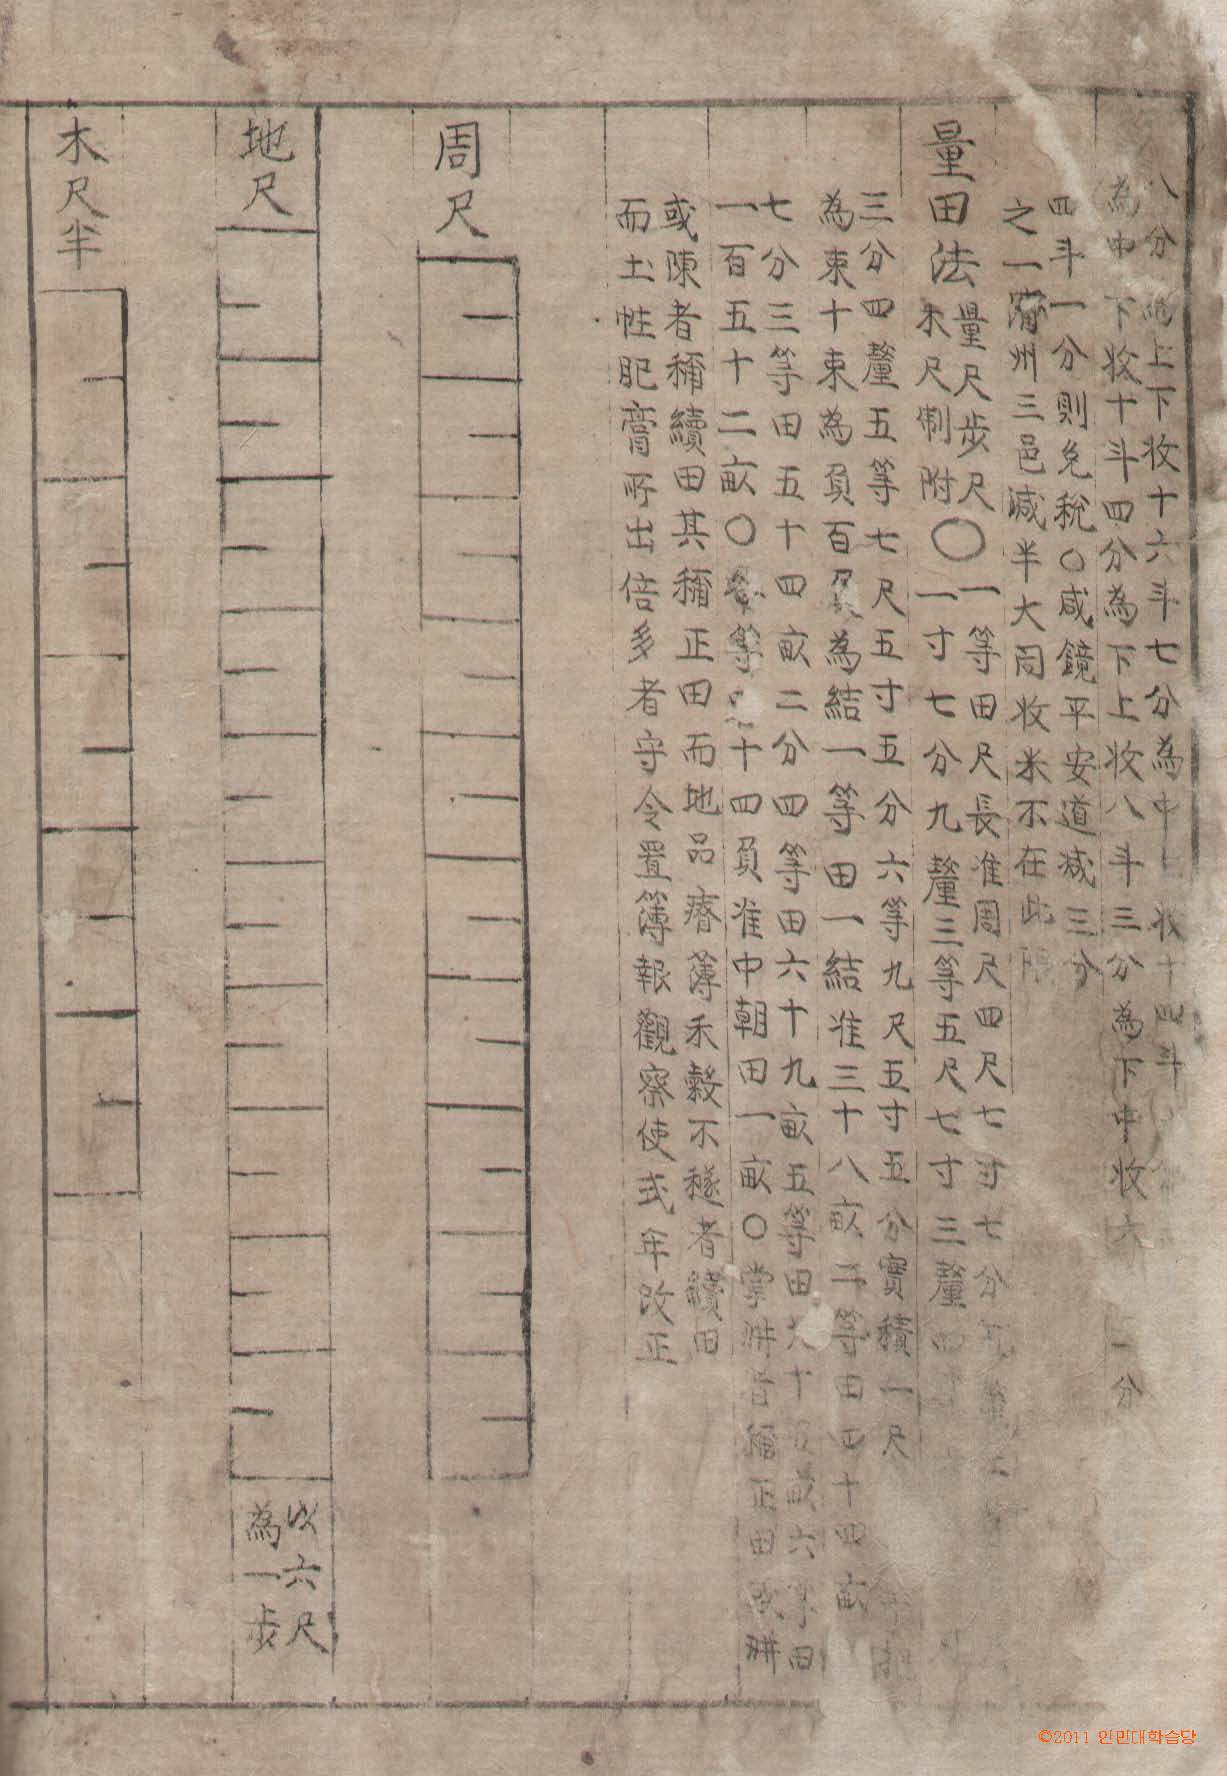 八分 上下收十六斗七分為中 收十四斗
為中下收十斗四分為下上收八斗三分為下中收六 一分
四斗一分則免稅○咸鏡平安道减三分
之一濟州三邑减半大同收米不在此限
量田法
量尺步尺
木尺制附
○
一等田尺長准周尺四尺七寸七分五
一寸七分九釐三等五尺七寸三釐四
三分四釐五等七尺五寸五分六等九尺五寸五分實積一尺
為束十束為負百負為結一等田一結准三十八畝二等田四十四畝
七分三等田五十四畝二分四等田六十九畝五等田九十五畝六等田
一百五十二畝○ 等 十四負准中朝田一畝○常耕者稱正田或耕
或陳者稱續田其稱正田而地品瘠薄禾穀不穟者續田
而土性肥膏所出倍多者守令置簿報觀察使式年改正
周尺
地尺
以六尺
為一步
木尺半
©2011 인민대학습당